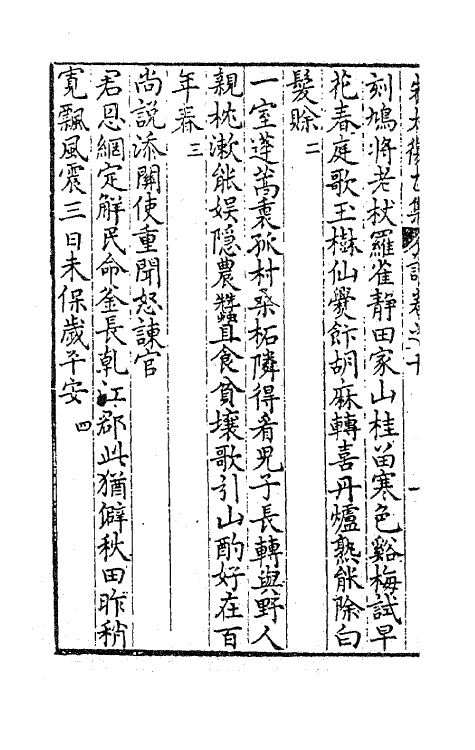 朱太復乙集 詩卷之十 一
刻鳩將老杖羅雀靜田家山桂留寒色谿梅試早
花春庭歌玉樹仙爨飰胡麻轉喜丹爐熟能除白
髮賒 二
一室蓬蒿裏孤村桑柘隣得看兒子長轉與野人
親枕漱能娛隱農蠶且食貧壤歌引山酌好在百
年春 三
尚說添關使重聞怒諫官
君恩網定解民命釜長乹江郡此猶僻秋田昨稍
寛飄風震三日未保歲平安 四